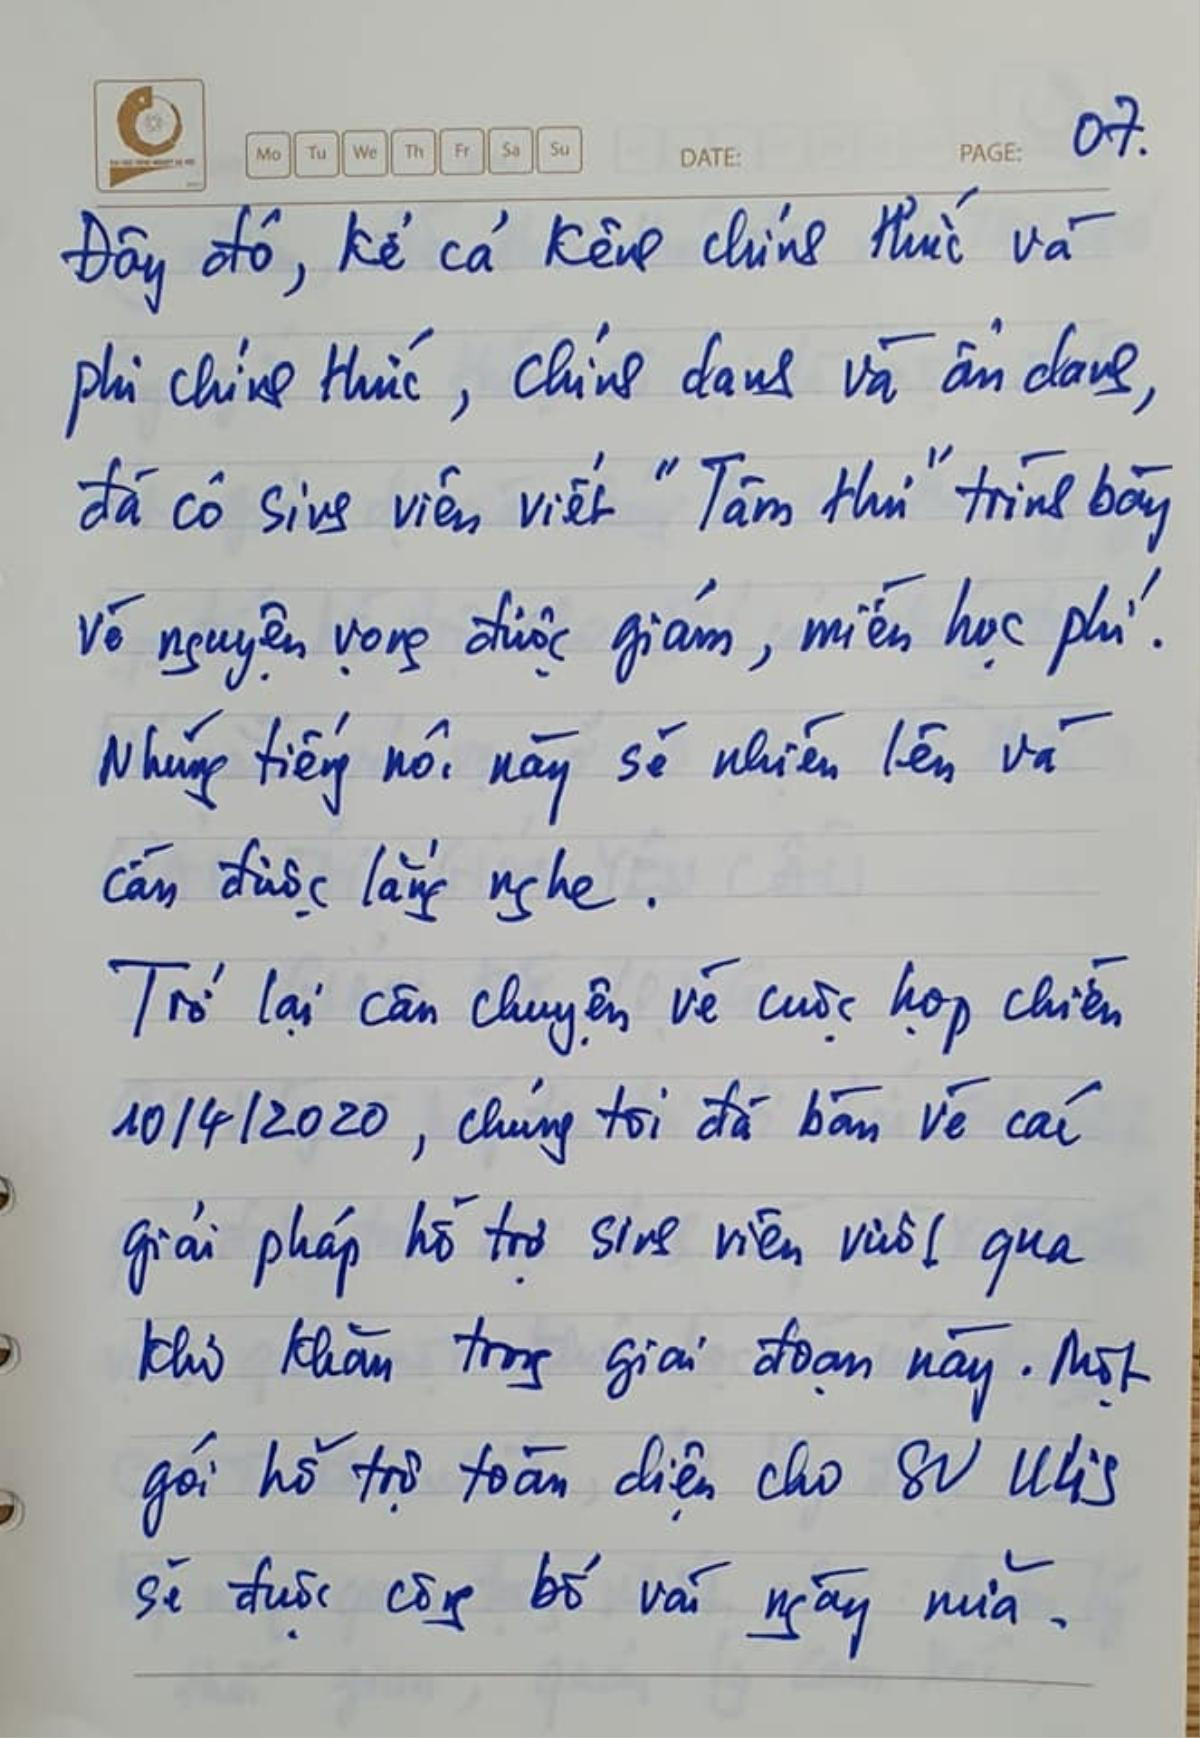 Mo Tu We Th Fr Sa Su DATE: PAGE: 07.
Đây đó, kể cả kênh chính thức và
phi chính thức, chính danh và ẩn danh,
đã có sinh viên viết "Tâm thư" trình bày
về nguyện vọng được giảm, miễn học phí.
Những tiếng nói này sẽ nhiều lên và
cần được lắng nghe.
Trở lại câu chuyện về cuộc họp chiều
10/4/2020, chúng tôi đã bàn về các
giải pháp hỗ trợ sinh viên vượt qua
khó khăn trong giai đoạn này. Một
gói hỗ trợ toàn diện cho SV Ulis
sẽ được công bố vài ngày nữa.